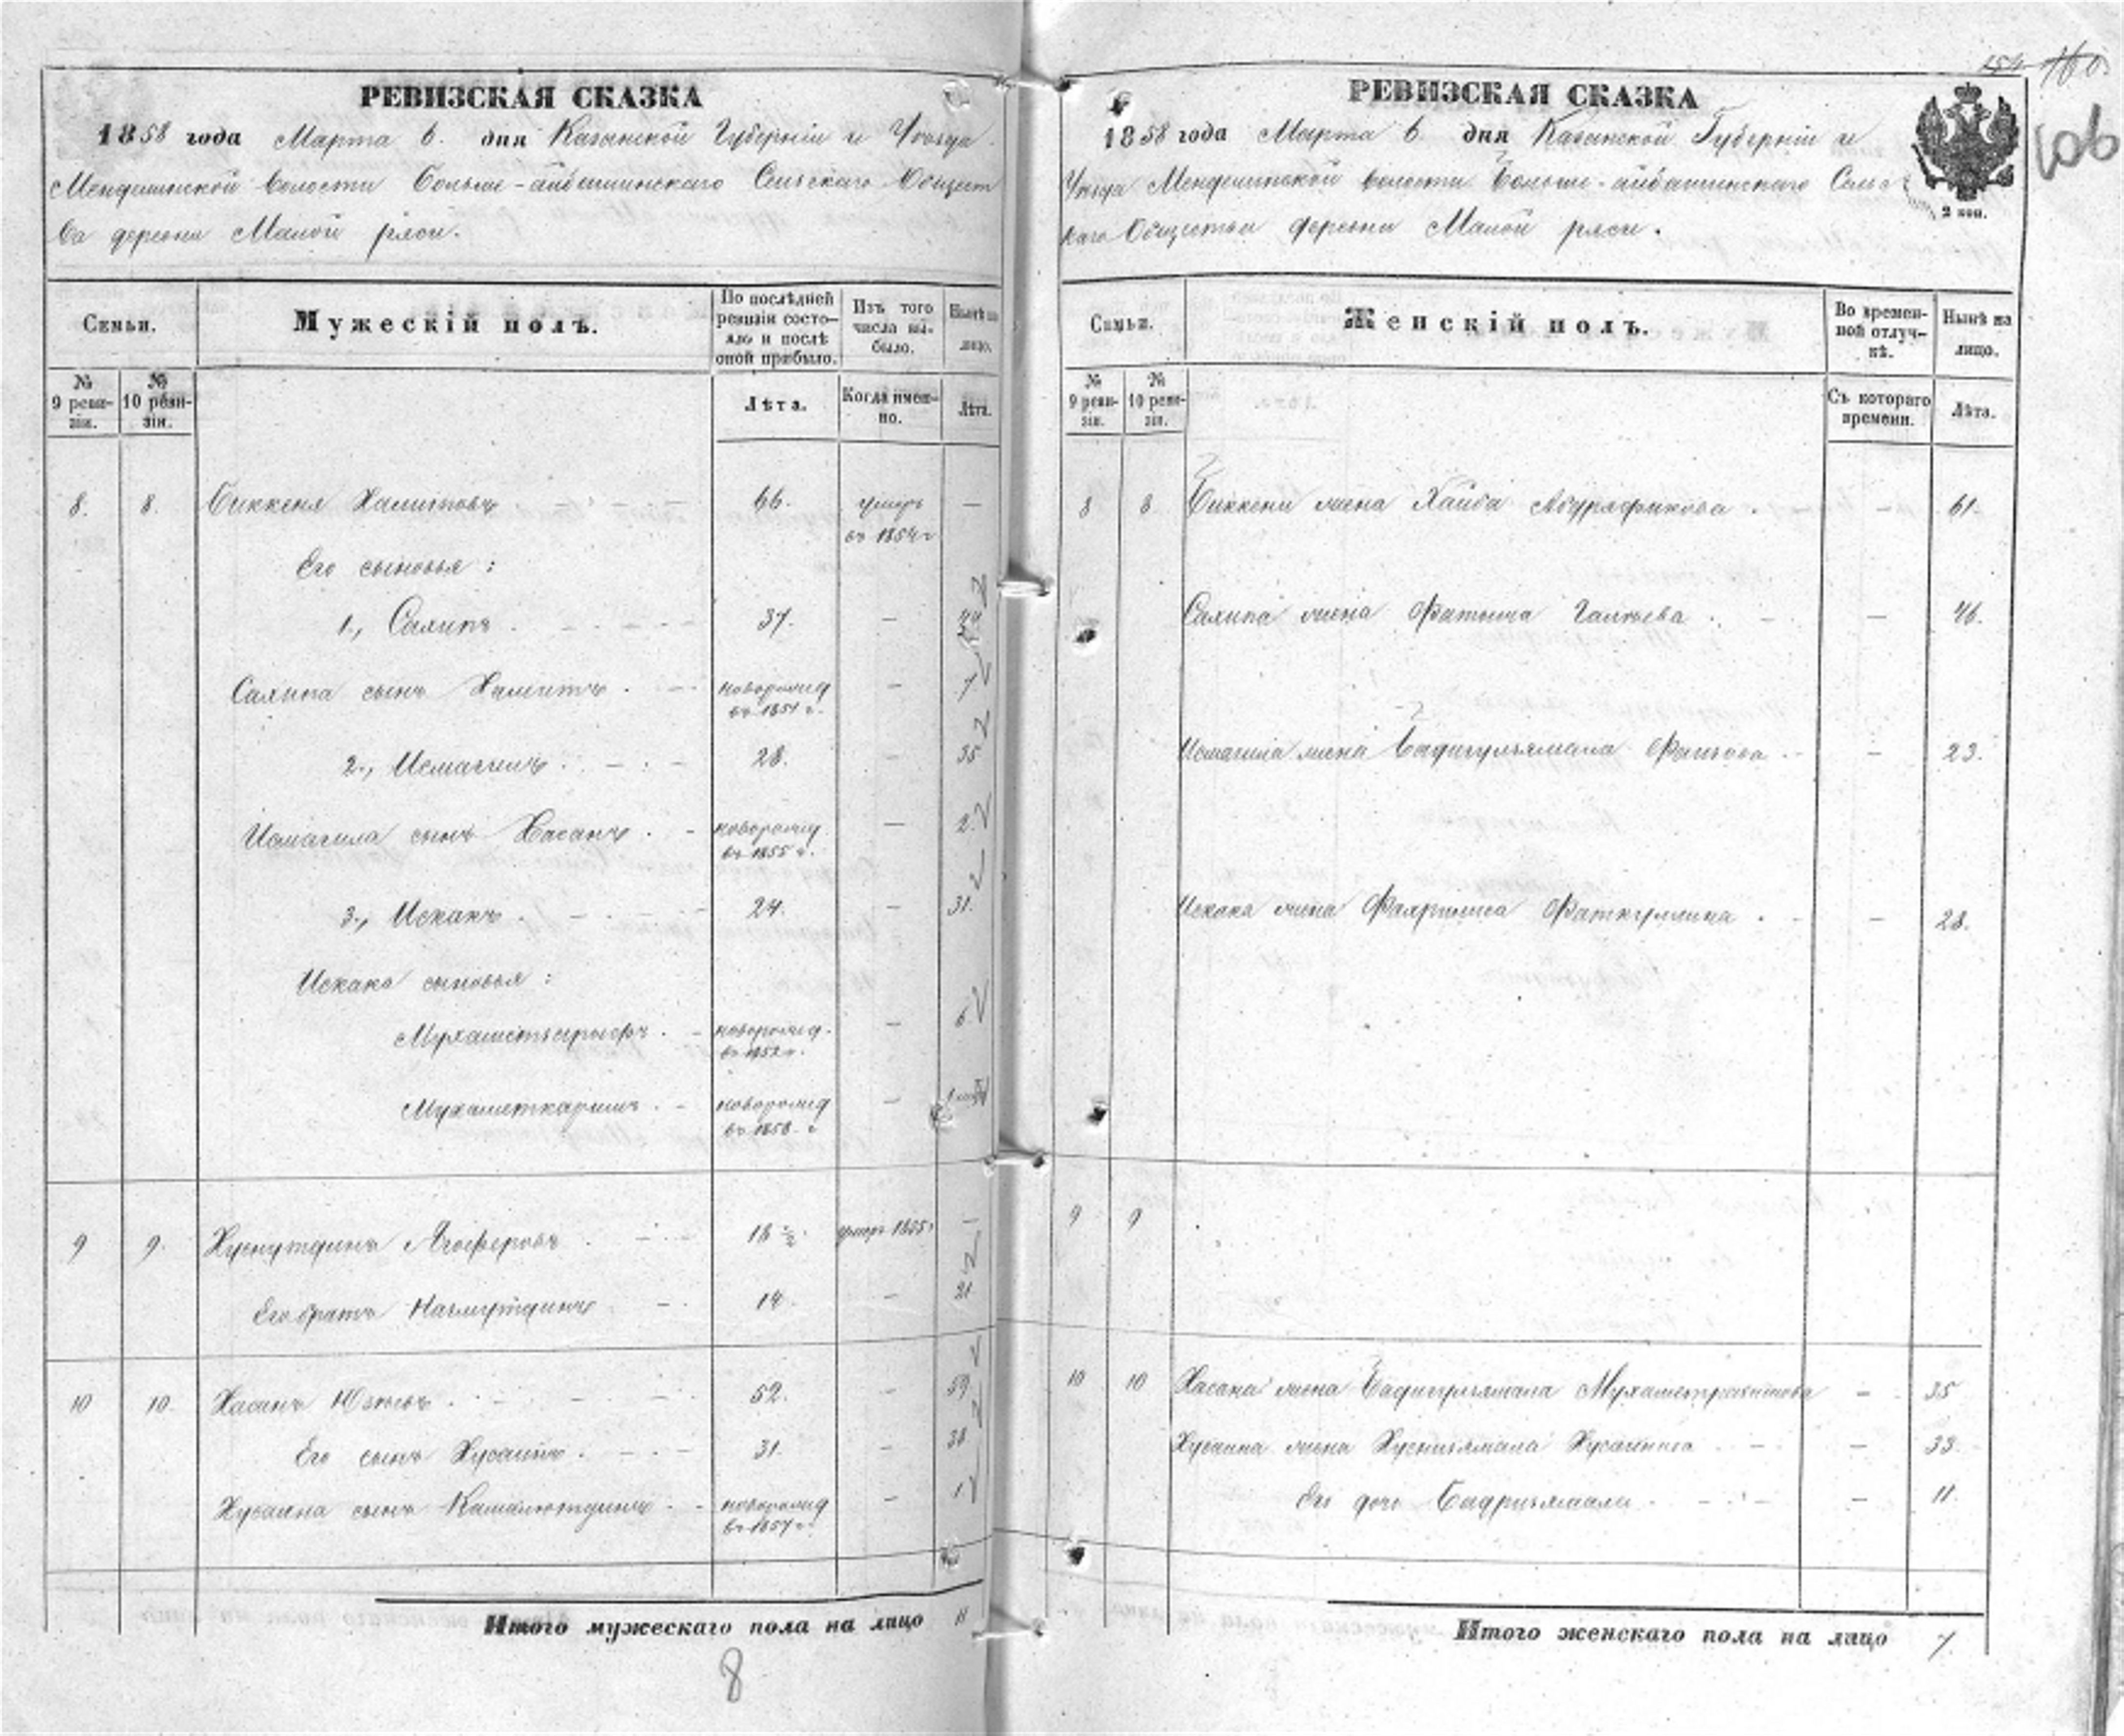 РЕВИЗСКАЯ СКАЗКА
1858 года Марта 6. дня Казанской Губерніи и Уѣзда
волости Больше-айбашинскаго Сельскаго Общест
ва деревни Малой ряси.
Семьи.
Мужескій полъ.
По послѣдней ревизіи состояло и послѣ оной прибыло.
Изъ того числа выбыло.
Нынѣ на лицо.
№ 9 ревизіи.
№ 10 ревизіи.
Лѣта.
Когда именно.
Лѣта.
8. 8. Биккеня Хамитовъ 66. умеръ въ 1854 г —
Его сыновья:
1., Салихъ 37. — 44
Салиха сынъ Хамитъ новорожд въ 1851 г. — 7
2., Исмагилъ 28. — 35
Исмагила сынъ Хасанъ новорожд въ 1855 г. — 2
3., Исхакъ 24. — 31.
Исхака сыновья:
новорожд. въ 1852 г. — 6
Мухаметкаримъ новорожд въ 1858 г —
9 9. Хуснутдинъ 18 ½ умеръ 1855 г —
Его братъ Назмутдинъ 14 — 21
10 10. Хасанъ 52. — 59
Его сынъ Хусаинъ 31. — 38
Хусаина сынъ Камалютдинъ новорожд въ 1857 г. — 1
Итого мужескаго пола на лицо 11
8
160.
106
РЕВИЗСКАЯ СКАЗКА
1858 года Марта 6. дня Казанской Губерніи и
Уѣзда волости Больше-айбашинскаго Сельс
каго Общества деревни Малой ряси.
2 коп.
Семьи.
Женскій полъ.
Во временной отлучкѣ.
Нынѣ на лицо.
№ 9 ревизіи.
№ 10 ревизіи.
Съ котораго времени.
Лѣта.
8 8 Биккени жена — 61.
Салиха жена Фатыма Галѣева — 46.
Исмагила жена Бадигульямала — 23.
Исхака жена Фаткуллина — 28.
9 9
10 10 Хасана жена — 35
Хусаина жена Хуснизямала — 33.
Его дочь — 11.
Итого женскаго пола на лицо 7.